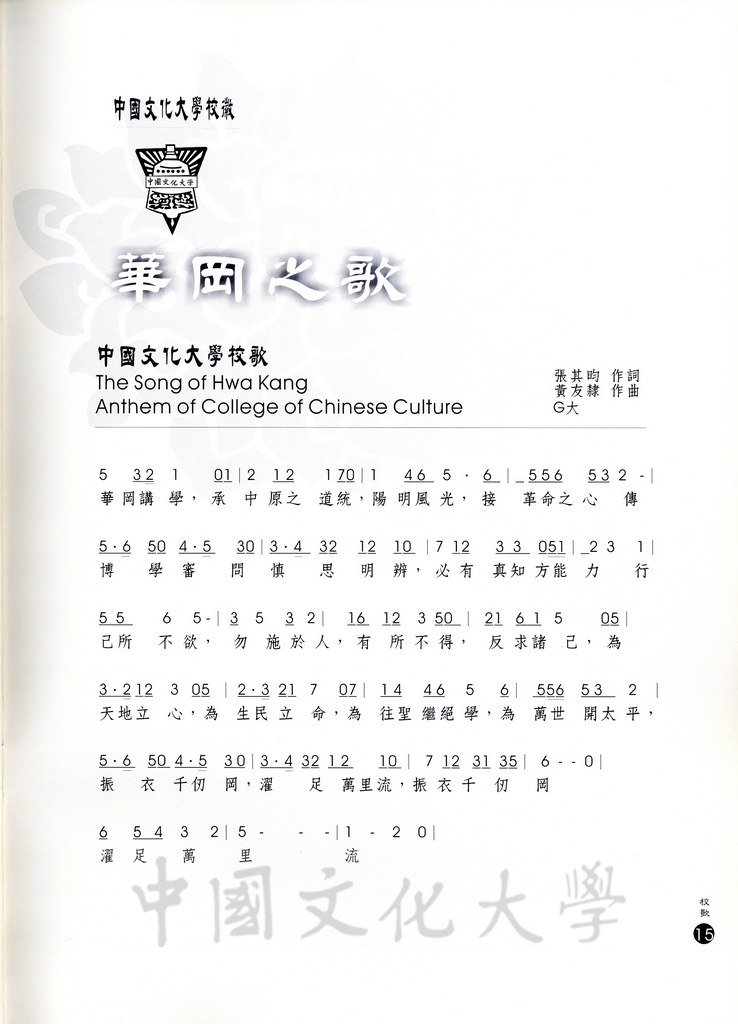 中國文化大學校徽
中國文化大學
華岡之歌
中國文化大學校歌
The Song of Hwa Kang
Anthem of College of Chinese Culture
張其昀 作詞
黃友棣 作曲
G大
5 32 1 01|2 12 170|1 46 5·6| 556 532-|
華岡講學，承中原之道統，陽明風光，接革命之心傳
5·6 50 4·5 30|3·4 32 12 10|7 12 33 051|23 1|
博學審問慎思明辨，必有真知方能力行
55 6 5-|3 5 32| 16 12 350| 21 61 5 05|
己所不欲，勿施於人，有所不得，反求諸己，為
3·212 3 05|2·3 21 7 07| 14 46 5 6| 556 53 2 |
天地立心，為生民立命，為往聖繼絕學，為萬世開太平，
5·6 50 4·5 30|3·4 32 12 10| 7 12 31 35| 6--0|
振衣千仞岡，濯足萬里流，振衣千仞岡
6 54 3 2|5- - -|1 - 2 0|
濯足萬里流
中國文化大學
校歌
15